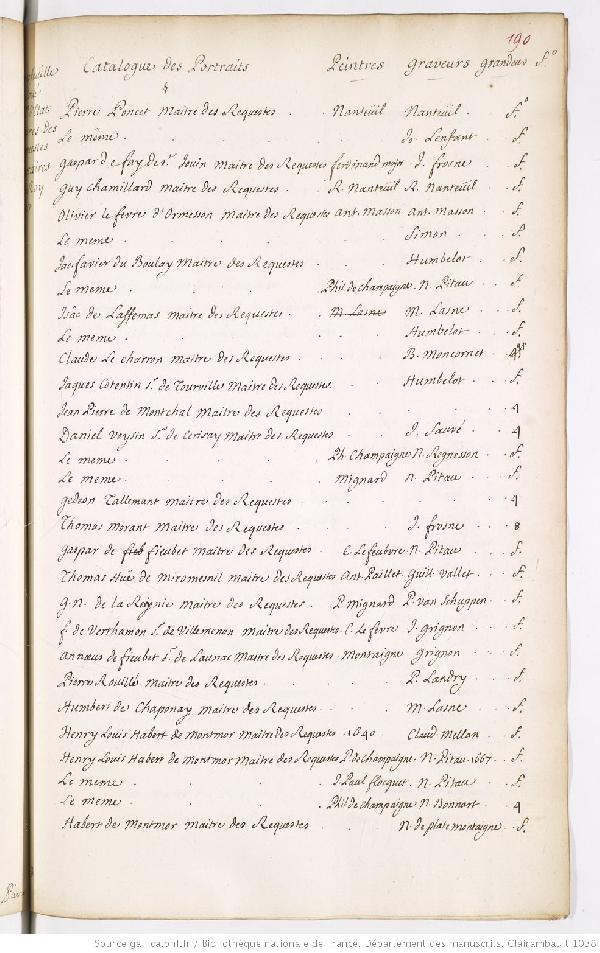 190
Catalogue des Portraits Peintres graveurs grandeur f.°
Pierre Poncet Maitre des Requestes . Nanteüil Nanteüil . f.°
Le même . . . . . Jo. Lenfant . f.
gaspard e fay, de s.r Jouin Maitre des Requestes ferdinand major J. frosne . . f.
Guy Chamillard maitre des Requestes . . R. Nanteüil R. Nanteüil . . f.
Olivier le fevre d'Ormesson maitre des Requestes Ant. Masson Ant. Masson . . f.
Le meme . . . . . Simon . . f.
Jac. favier du Boulay Maitre des Requestes . . . Humbelot . . f.
Le meme . . . Phil de champaigne . N. Pitau . . f.
Isac de Laffemas maitre des Requestes . . M. Lasne M. Lasne . . f.
Le meme . . . . . Humbelot . f.
Claude Le charron maitre des Requestes . . . B. Moncornet . 4
Jaques Cotentin s.r de Tourville Maitre des Requetes . . Humbelot . . f.
Jean Pierre de Montchal Maitre des Requestes . . . . 4
Daniel Voysin s.r de Cerisay Maitre des Requestes . . J. Sauvé . . 4
Le meme . . . Ph. Champaigne N. Regnesson . . f.
Le meme . . . Mignard N. Pitau . . f.
gedeon Tallemant maitre des Requestes . . . . 4
Thomas Morant Maitre des Requestes . . . J. frosne . . . 8
gaspar de fieb fieubet maitre des Requestes . C. Lefeubvre N. Pitau . . . f.
Thomas Hüe de Miromesnil maitre des Requestes Ant. Paillet Guill. Vallet . . . f.
g. n. de la Reynie maitre des Requestes . . P. Mignard P. Van Schuppen . . f.
f. de Verthamon s.r de Villemenon maitre des Requestes C. Le fevre J. Grignon . . . f.
annœus de fieubet s.r de Launac Maitre des Requestes Montaigne Grignon . . . f.
Pierre Rouillé maitre des Requestes . . . . P. Landry . . . f.
Humbert de Chaponay maitre des Requestes . . . M. Lasne . . . f.
Henry Louis Habert de Montmor Maitre des Requestes . 1640 . Claud Mellan . . f.
Henry Louis Habert de Montmor Maitre des Requestes P. de Champaigne . N. Pitau . 1667 . . f.
Le meme . . . J. Paul flocquet . N. Pitau . . . f.
Le meme . . . Phil de champaigne N. Bonnart . . 4
Habert de Montmor maitre des Requestes . . N. de plate montaigne . . f.
Source gallica.bnf.fr / Bibliothèque nationale de France. Département des manuscrits. Clairambault 1038